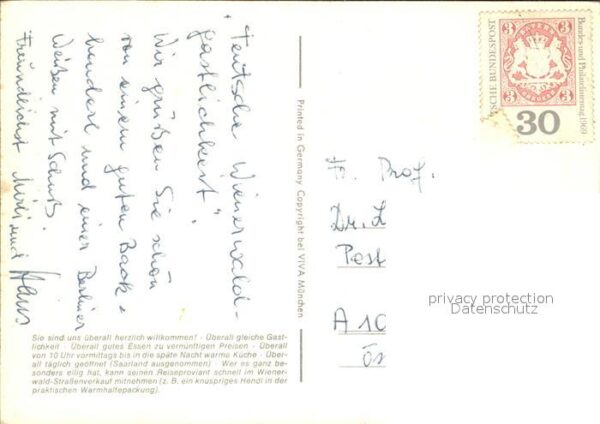 "Teutsche Wienerwald-
gastlichkeit".
Wir grüßen Sie schön
von einem guten Back-
henderl und einer Berliner
Weißen mit Schuß.
Freundlichst und Hans
Sie sind uns überall herzlich willkommen! · Überall gleiche Gast-
lichkeit · Überall gutes Essen zu vernünftigen Preisen · Überall
von 10 Uhr vormittags bis in die späte Nacht warme Küche · Über-
all täglich geöffnet (Saarland ausgenommen) · Wer es ganz be-
sonders eilig hat, kann seinen Reiseproviant schnell im Wiener-
wald-Straßenverkauf mitnehmen (z. B. ein knuspriges Hendl in der
praktischen Warmhaltepackung).
Printed in Germany Copyright bei VIVA München
3 3
3 3
SCHE BUNDESPOST
Bundes und Philatelistentag 1969
30
Fr. Prof.
Dr. L
Post
A 10
Ös
privacy protection
Datenschutz